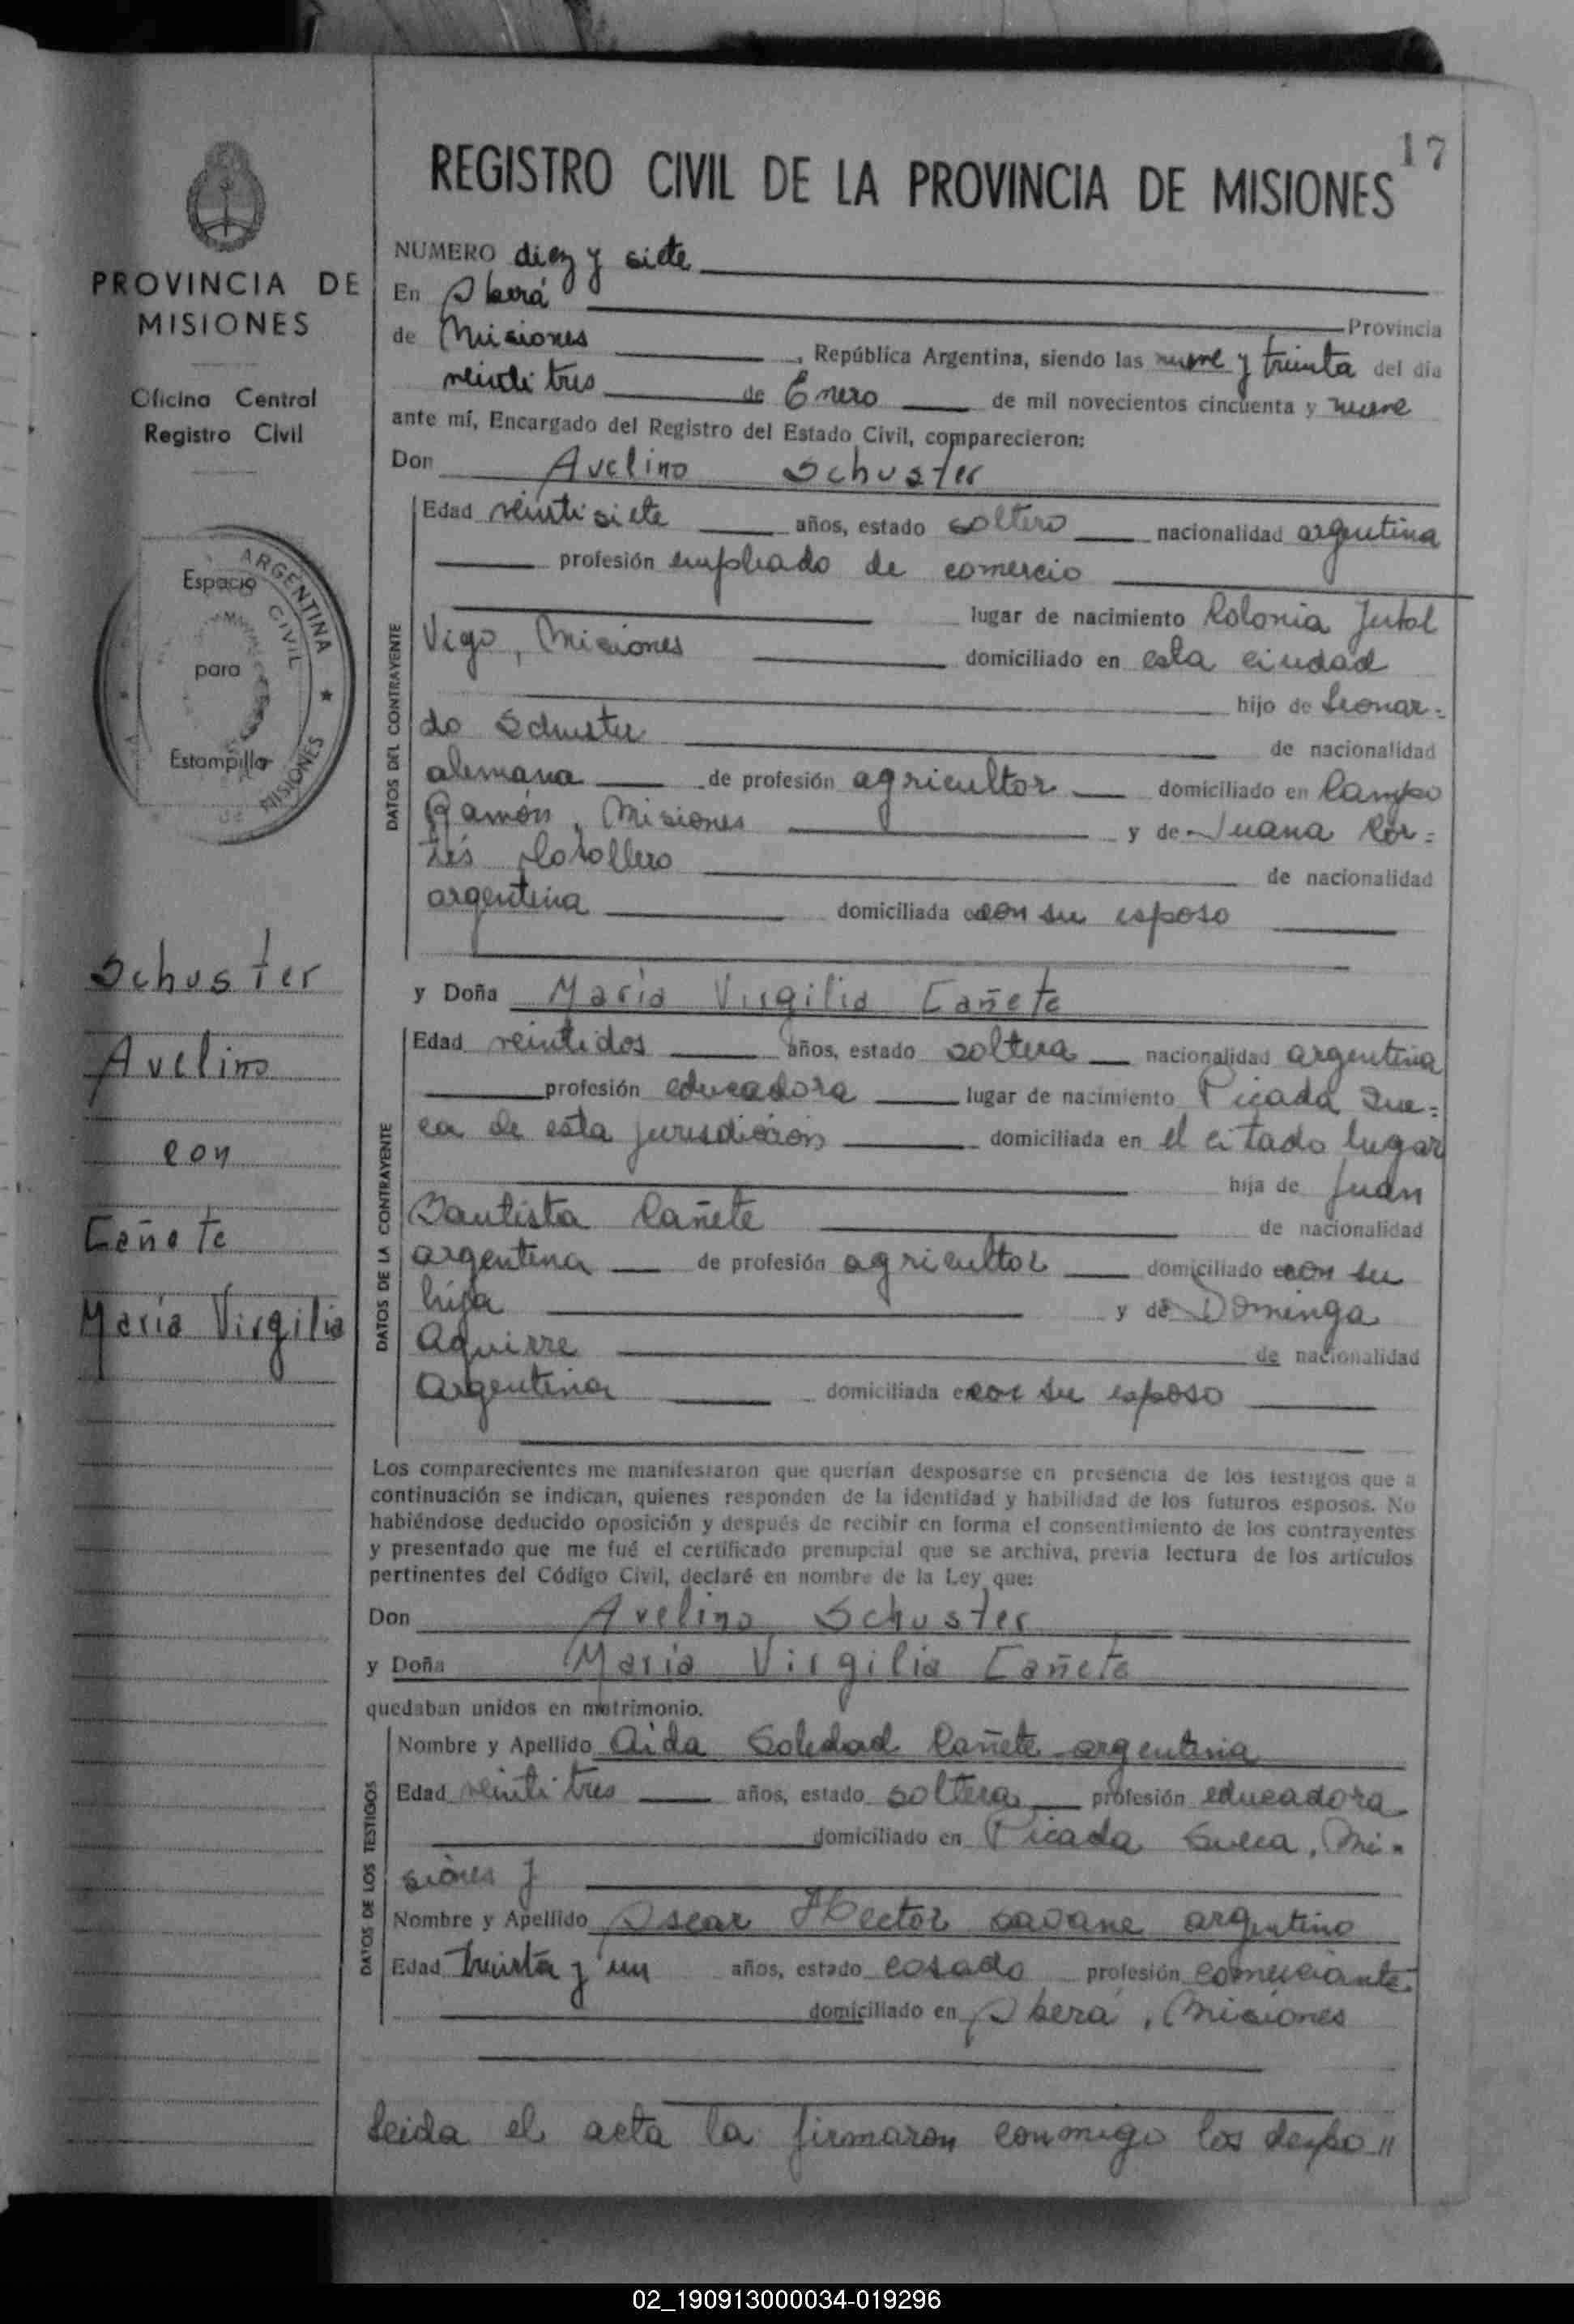 17
REGISTRO CIVIL DE LA PROVINCIA DE MISIONES
PROVINCIA DE
MISIONES
Oficina Central
Registro Civil
ARGENTINA
CIVIL
MISIONES
Espacio
para
Estampilla
Schuster
Avelino
con
Cañete
María Virgilia
NUMERO diez y siete
En Oberá Provincia
de Misiones, República Argentina, siendo las nueve y treinta del día
veinti tres de Enero de mil novecientos cincuenta y nueve
ante mí, Encargado del Registro del Estado Civil, comparecieron:
Don Avelino Schuster
DATOS DEL CONTRAYENTE
Edad veintisiete años, estado soltero nacionalidad argentina
profesión empleado de comercio
lugar de nacimiento Colonia
Vigo, Misiones domiciliado en esta ciudad
hijo de Leonar=
do Schuster de nacionalidad
alemana de profesión agricultor domiciliado en Campo
Ramón, Misiones y de Juana Cor=
tés de nacionalidad
argentina domiciliada con su esposo
y Doña María Virgilia Cañete
DATOS DE LA CONTRAYENTE
Edad veintidos años, estado soltera nacionalidad argentina
profesión educadora lugar de nacimiento Picada Sue=
ca de esta jurisdicción domiciliada en el citado lugar
hija de Juan
Bautista Cañete de nacionalidad
argentina de profesión agricultor domiciliado con su
hija y de Dominga
Aguirre de nacionalidad
Argentina domiciliada con su esposo
Los comparecientes me manifestaron que querían desposarse en presencia de los testigos que a
continuación se indican, quienes responden de la identidad y habilidad de los futuros esposos. No
habiéndose deducido oposición y después de recibir en forma el consentimiento de los contrayentes
y presentado que me fué el certificado prenupcial que se archiva, previa lectura de los artículos
pertinentes del Código Civil, declaré en nombre de la Ley que:
Don Avelino Schuster
y Doña María Virgilia Cañete
quedaban unidos en matrimonio.
DATOS DE LOS TESTIGOS
Nombre y Apellido Aida Soledad Cañete argentina
Edad veinti tres años, estado soltera profesión educadora
domiciliado en Picada Sueca, Mi=
siones y
Nombre y Apellido Oscar Hector Savane argentino
Edad treinta y un años, estado casado profesión comerciante
domiciliado en Oberá, Misiones
Leida el acta la firmaron conmigo los despo"
02_190913000034-019296